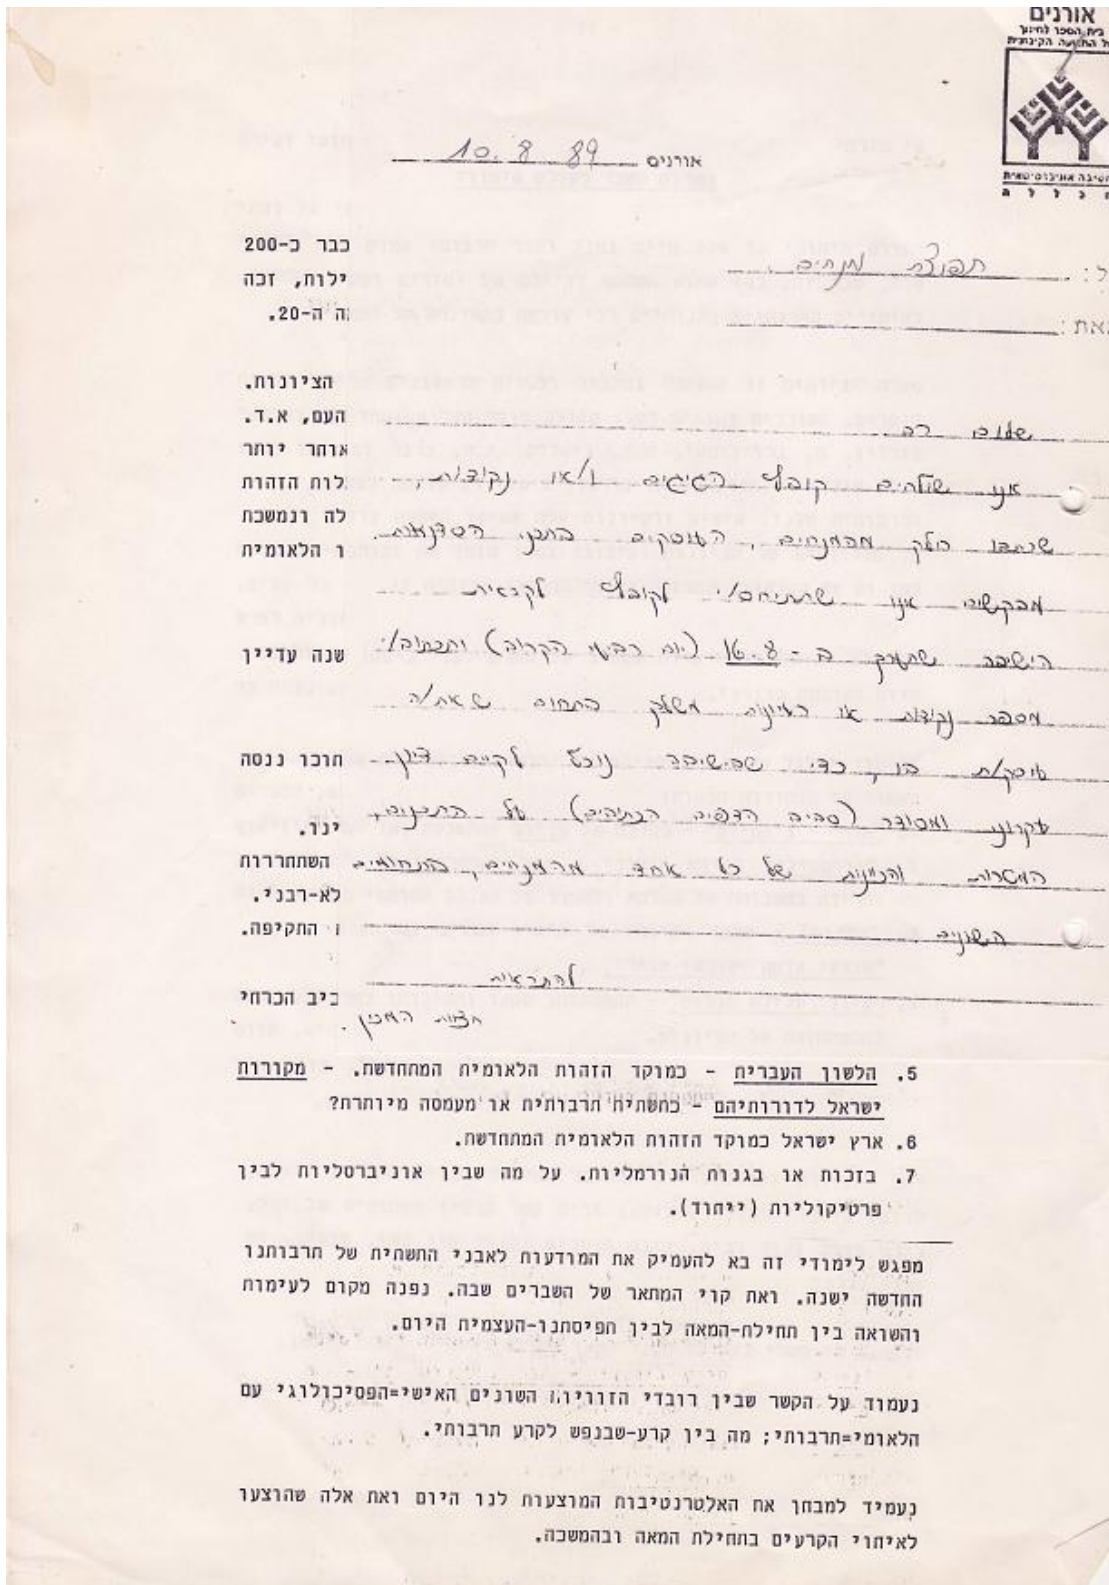 אורנים
בית הספר לחינוך
של התנועה הקיבוצית
חטיבה אוניברסיטאית
מכללה
אורנים 10.8.89
כבר כ-200
ילות, זכה
ה ה-20.
ל: תפוצת מנחים
מאת:
הציונות.
העם, א.ד.
אוחר יותר
לות הזהות
לה ונמשכת
ו הלאומית
שנה עדיין
חוכו ננסה
ינו.
השתחררות
לא-רבני.
ו התקיפה.
כיב הכרחי
שלום רב
אנו שולחים קובץ הגיגים ו/או נקודות,
שכתבו חלק מהמנחים, העוסקים בתכני הסדנאות.
מבקשים אנו שתתיחס/י לקובץ לקראת
הישיבה שתערך ב-16.8 (יום רביעי הקרוב) ותכתוב/י
מספר נקודות או רעיונות משלך בתחום שאת/ה
עוסק/ת בו, כדי שבישיבה נוכל לקיים דיון
עקרוני ומסודר (סביב הדפים הכתובים) על התכנים,
המטרות והכוונות של כל אחד מהמנחים, בתחומים
השונים.
להתראות
צוות המכון.
5. הלשון העברית - כמוקד הזהות הלאומית המתחדשת. - מקורות
ישראל לדורותיהם - כתשתית תרבותית או מעמסה מיותרת?
6. ארץ ישראל כמוקד הזהות הלאומית המתחדשת.
7. בזכות או בגנות הנורמליות. על מה שבין אוניברסליות לבין
פרטיקוליות (ייחוד).
מפגש לימודי זה בא להעמיק את המודעות לאבני התשתית של תרבותנו
החדשה ישנה. ואת קוי המתאר של השברים שבה. נפנה מקום לעימות
והשואה בין תחילת-המאה לבין תפיסתנו-העצמית היום.
נעמוד על הקשר שבין רובדי הזוויות השונים האישי=הפסיכולוגי עם
הלאומי=תרבותי; מה בין קרע-שבנפש לקרע תרבותי.
נעמיד למבחן את האלטרנטיבות המוצעות לנו היום ואת אלה שהוצעו
לאיחוי הקרעים בתחילת המאה ובהמשכה.